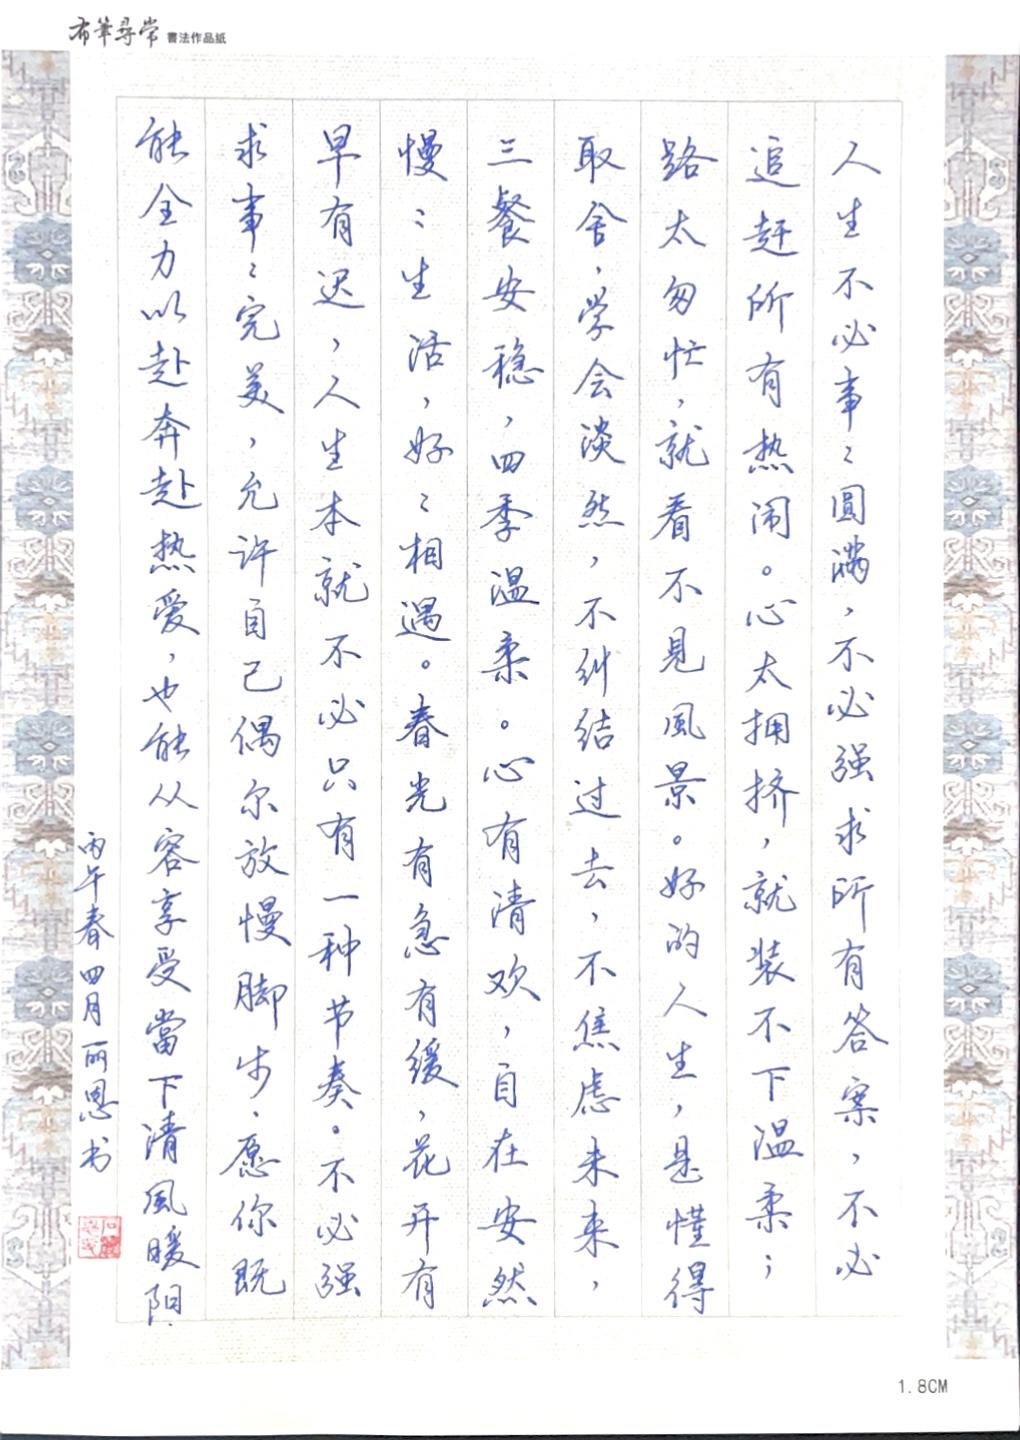 布筆尋常 書法作品紙
人生不必事〻圓满，不必强求所有答案，不必
追赶所有热闹。心太拥挤，就装不下温柔；
路太匆忙，就看不见風景。好的人生，是懂得
取舍，学会淡然，不纠结过去，不焦虑未来，
三餐安稳，四季温柔。心有清欢，自在安然
慢〻生活，好〻相遇。春光有急有缓，花开有
早有迟，人生本就不必只有一种节奏。不必强
求事〻完美，允许自己偶尔放慢脚步．愿你既
能全力以赴奔赴热爱，也能从容享受當下清風暖阳．
丙午春四月丽恩书
1.8CM